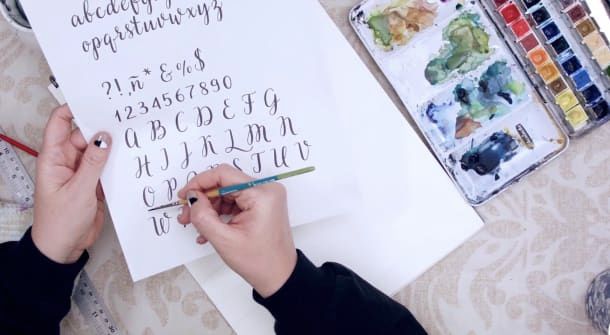 abcdefg
opqrstuvwxyz
?!,ñ* &%$
1234567890
A B C D E F G
H I J K L M N
O P S T U V
W